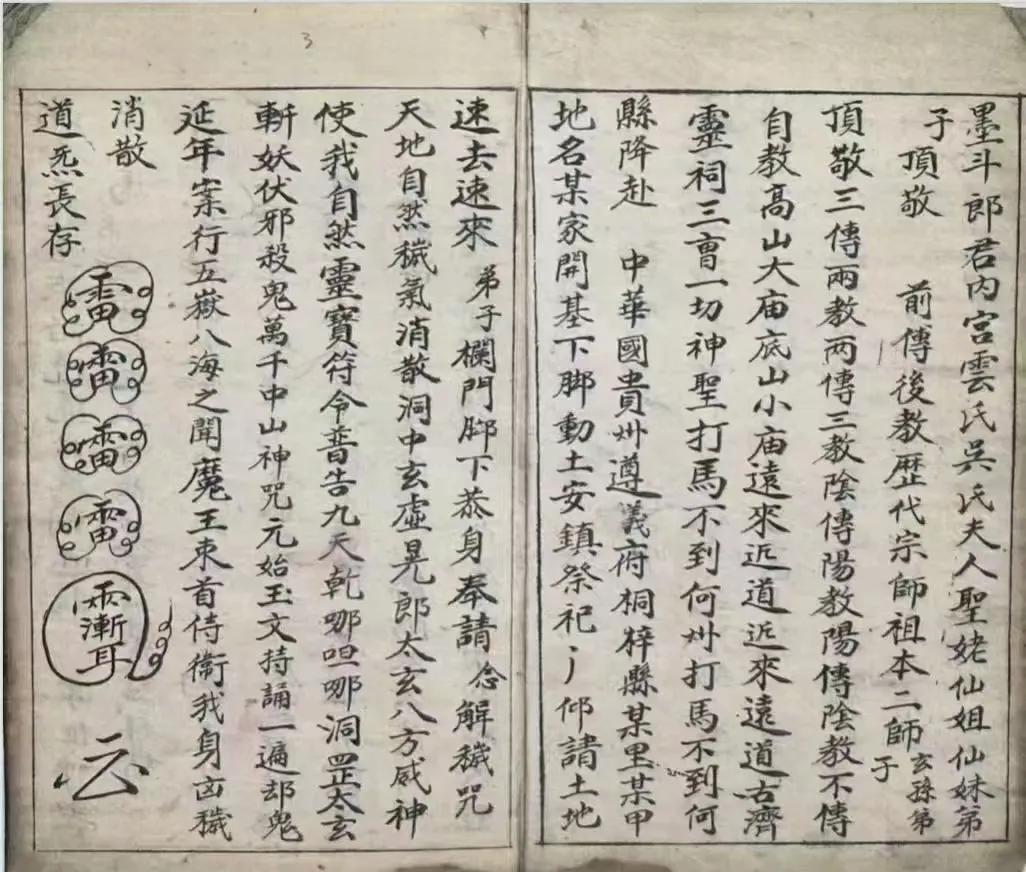 墨斗郎君内宮雲氏吳氏夫人聖姥仙姐仙妹弟
子頂敬 前傳後教歷代宗師祖本二師玄孫弟子
頂敬三傳兩教两傳三教陰傳陽教陽傳陰教不傳
自教高山大庙底山小庙遠來近道近來遠道古濟
靈祠三會一切神聖打馬不到何州打馬不到何
縣降赴 中華國貴州遵義府桐梓縣某里某甲
地名某家開基下脚動土安鎮祭祀 仰請土地
速去速來 弟子欄門脚下恭身奉請 念解穢咒
天地自然穢氣消散洞中玄虛晃郎太玄八方威神
使我自然靈寶符令普告九天乹哪呾哪洞罡太玄
斬妖伏邪殺鬼萬千中山神咒元始玉文持誦一遍却鬼
延年案行五嶽八海之聞魔王束首侍衞我身凶穢
消散
道炁長存
3